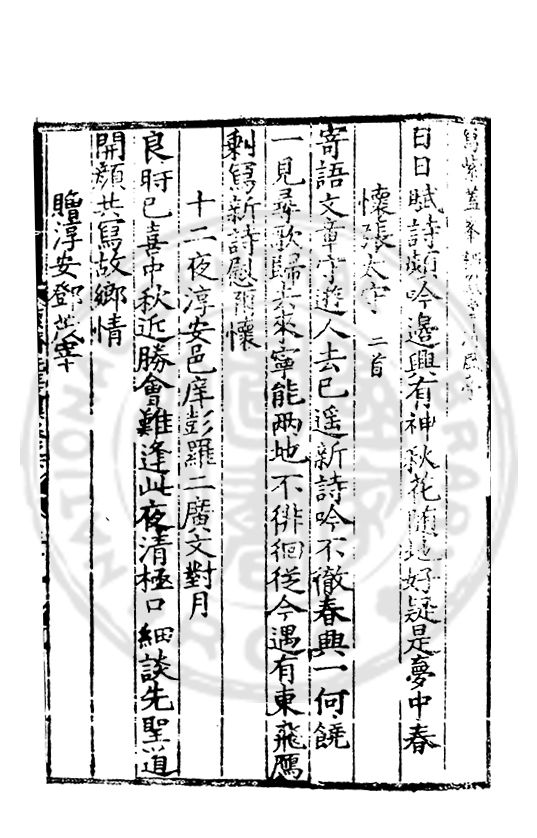 寫紫蓋峯
日日賦詩巔吟邊興有神秋花隨處好疑是夢中春
懷張太守 二首
寄語文章守遊人去已遥新詩吟不徹春興一何饒
一見尋歌歸去來寧能兩地不徘徊從今遇有東飛鴈
剩寫新詩慰爾懷
十二夜淳安邑庠彭羅二廣文對月
良時已喜中秋近勝會難逢此夜清極口細談先聖道
開顔共寫故鄉情
贈淳安鄧